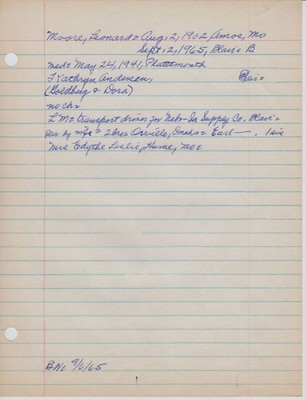 Moore, Leonard= Aug. 2, 1902 Amos, Mo
Sept. 2, 1965, Blair= B
med= May 24, 1941, Plattsmouth
Kathryn Andersen, Blair=
(Goldberg & Dora)
no ch=
LM= transport driver for Nebr-Ia Supply Co, Blair=
sur by wife= 2 bros Orville, Omaha= Earl—. 1 sis
Mrs Edythe Leslie, Hume, Mo=
BNo 9/6/65